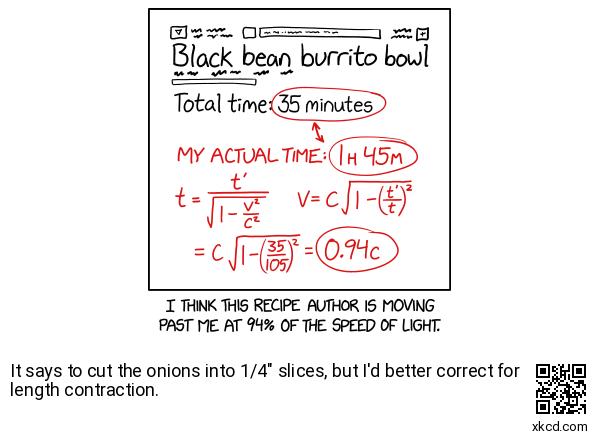 Black bean burrito bowl
Total time: 35 minutes
MY ACTUAL TIME: 1H 45M
t = t' / √(1 - v²/c²)    V = C√(1 - (t'/t)²)
= C√(1 - (35/105)²) = 0.94c
I THINK THIS RECIPE AUTHOR IS MOVING
PAST ME AT 94% OF THE SPEED OF LIGHT.
It says to cut the onions into 1/4" slices, but I'd better correct for
length contraction.
xkcd.com